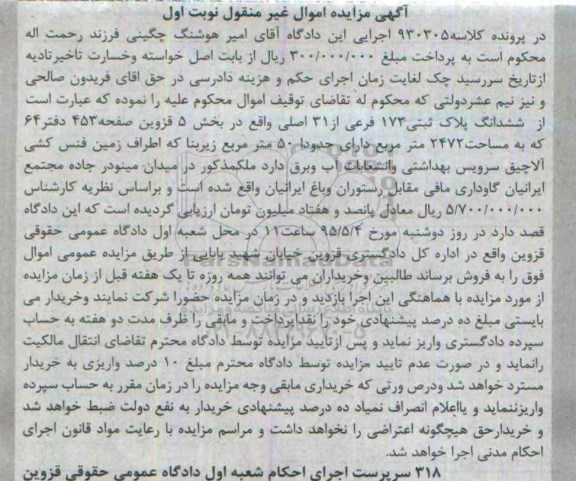 آگهی مزایده اموال غیر منقول نوبت اول
در پرونده کلاسه۹۳۰۳۰۵ اجرایی این دادگاه آقای امیر هوشنگ چگینی فرزند رحمت اله
محکوم است به پرداخت مبلغ ۳۰۰/۰۰۰/۰۰۰ ریال از بابت اصل خواسته وخسارت تاخیرتادیه
ازتاریخ سررسید چک لغایت زمان اجرای حکم و هزینه دادرسی در حق اقای فریدون صالحی
و نیز نیم عشردولتی که محکوم له تقاضای توقیف اموال محکوم علیه را نموده که عبارت است
از ششدانگ پلاک ثبتی۱۷۳ فرعی از۳۱ اصلی واقع در بخش ۵ قزوین صفحه۴۵۳ دفتر۶۴
که به مساحت۲۴۷۲ متر مربع دارای حدودا ۵۰ متر مربع زیربنا که اطراف زمین فنس کشی
آلاچیق سرویس بهداشتی وانشعابات آب وبرق دارد ملکمذکور در میدان مینودر جاده مجتمع
ایرانیان گاوداری مافی مقابل رستوران وباغ ایرانیان واقع شده است و براساس نظریه کارشناس
۵/۷۰۰/۰۰۰/۰۰۰ ریال معادل پانصد و هفتاد میلیون تومان ارزیابی گردیده است که این دادگاه
قصد دارد در روز دوشنبه مورخ ۹۵/۵/۴ ساعت۱۱ در محل شعبه اول دادگاه عمومی حقوقی
قزوین واقع در اداره کل دادگستری قزوین خیابان شهید بابایی از طریق مزایده عمومی اموال
فوق را به فروش برساند طالبین وخریداران می توانند همه روزه تا یک هفته قبل از زمان مزایده
از مورد مزایده با هماهنگی این اجرا بازدید و در زمان مزایده حضورا شرکت نمایند وخریدار می
بایستی مبلغ ده درصد پیشنهادی خود را نقداپرداخت و مابقی را ظرف مدت دو هفته به حساب
سپرده دادگستری واریز نماید و پس ازتایید مزایده توسط دادگاه محترم تقاضای انتقال مالکیت
رانماید و در صورت عدم تایید مزایده توسط دادگاه محترم مبلغ ۱۰ درصد واریزی به خریدار
مسترد خواهد شد ودرص ورتی که خریداری مابقی وجه مزایده را در زمان مقرر به حساب سپرده
واریزننماید و یااعلام انصراف نمیاد ده درصد پیشنهادی خریدار به نفع دولت ضبط خواهد شد
و خریدارحق هیچگونه اعتراضی را نخواهد داشت و مراسم مزایده با رعایت مواد قانون اجرای
احکام مدنی اجرا خواهد شد.
۳۱۸ سرپرست اجرای احکام شعبه اول دادگاه عمومی حقوقی قزوین